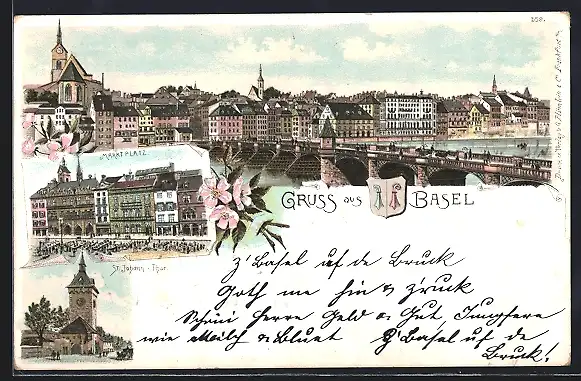 258.
MARKTPLATZ.
GRUSS aus BASEL
St. Johann-Thor.
z'Basel uf de Bruck
Goth me hin & z'ruck
Schöni Herre Geld & Gut Jungfere
wie Milch & Bluet z'Basel uf de
Bruck!